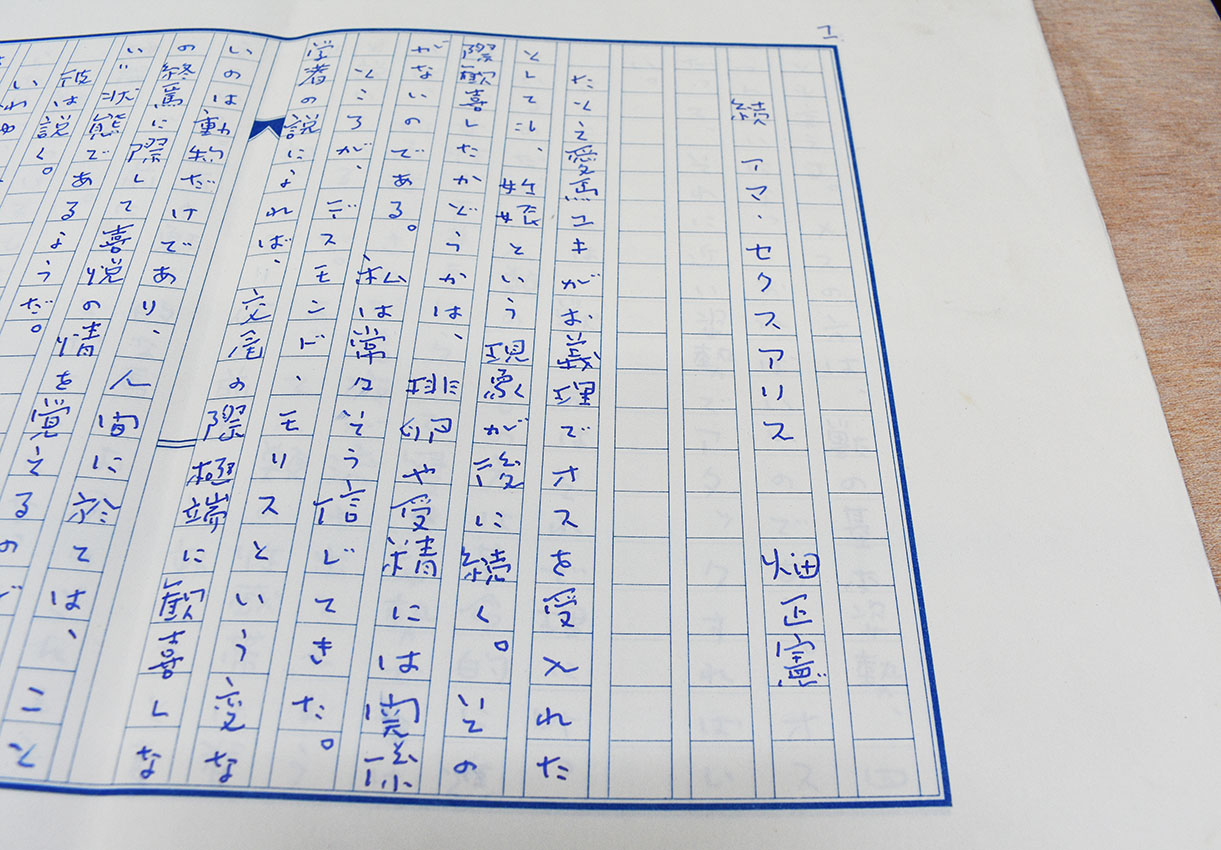 1
続 アマ・セクスアリス
畑正憲
たとえ愛馬ユキがお義理でオスを受入れた
としても、妊娠という現象が後に続く。その
際歓喜したかどうかは、排卵や受精には関係
がないのである。私は常々そう信じてきた。
ところが、デスモンド・モリスという変な
学者の説によれば、交尾の際極端に歓喜しな
いのは動物だけであり、人間に於ては、こと
の終焉に際して喜悦の情を覚えるの
いい状態であるようだ。
彼は説く。
いわゆ